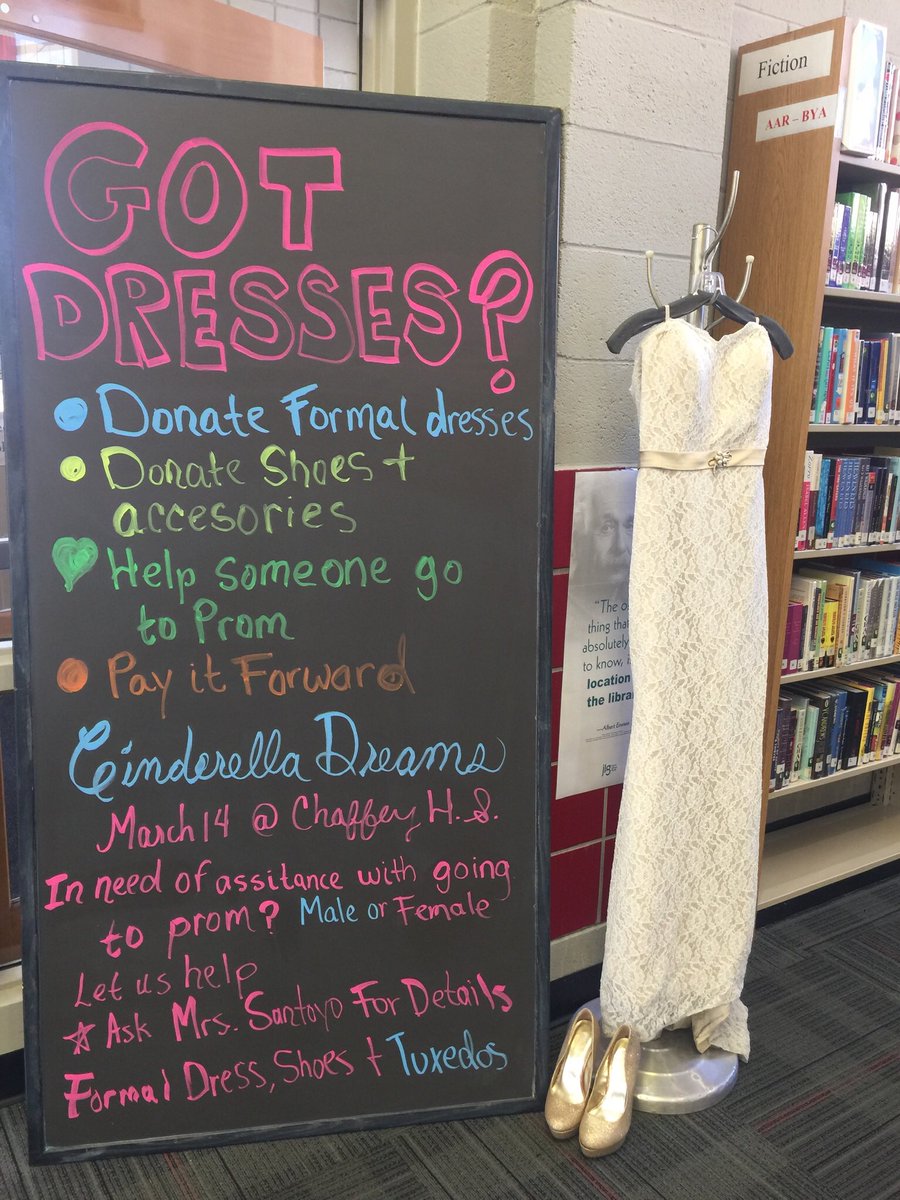 GOT
DRESSES?
Donate Formal dresses
Donate Shoes +
accesories
Help someone go
to Prom
Pay it Forward
Cinderella Dreams
March 14 @ Chaffey H.S.
In need of assitance with going
to prom? Male or Female
Let us help
Ask Mrs. Santoyo For Details
Formal Dress, Shoes + Tuxedos
Fiction
AAR – BYA
"The
thing that
absolutely
to know,
location
the
—Albert
jlg